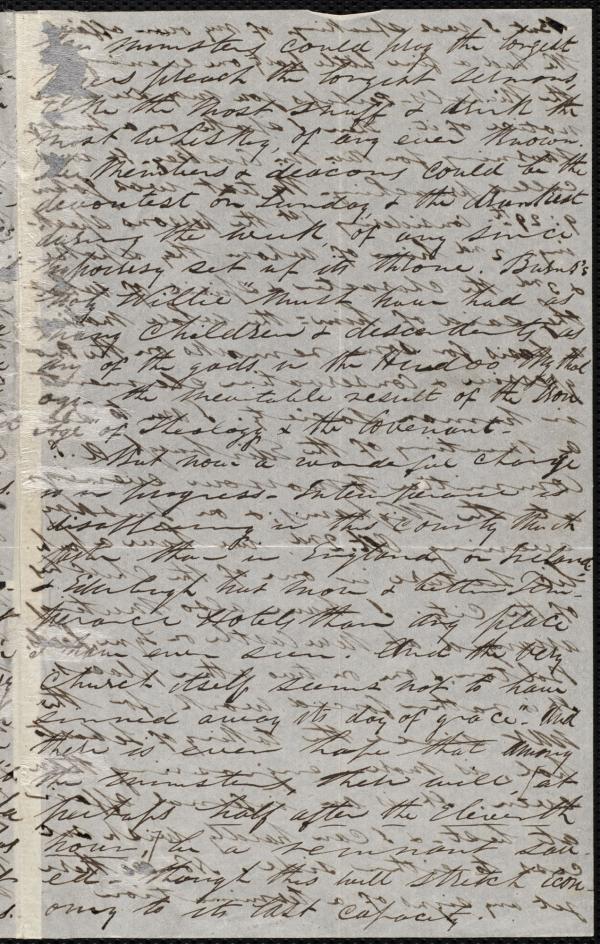 ministers could pray the longest
preach the longest sermons,
the most snuff & drink the
most whiskey, of any ever known.
members & deacons could be the
devoutest on Sunday, & the drunkest
during the week of any since
hypocrisy set up its throne. Burns's
Holy Willie must have had as
many children & descendents as
any of the gods in the Hindoo Mythol
ogy - the inevitable result of the Iron
Age of Theology & the Covenant -
But now a wonderful change
is in progress - Intemperance is
disappearing in this county much
than in England or Ireland,
& Edinburgh has more & better Tem-
perance Hotels than any place
I have ever seen - And the very
Church itself seems not to have
"sinned away its day of grace". And
there is even hope that among
the ministers, there will, (at
perhaps half after the eleventh
hour,) be a remnant sav-
ed - though this will stretch
to its last capacity.